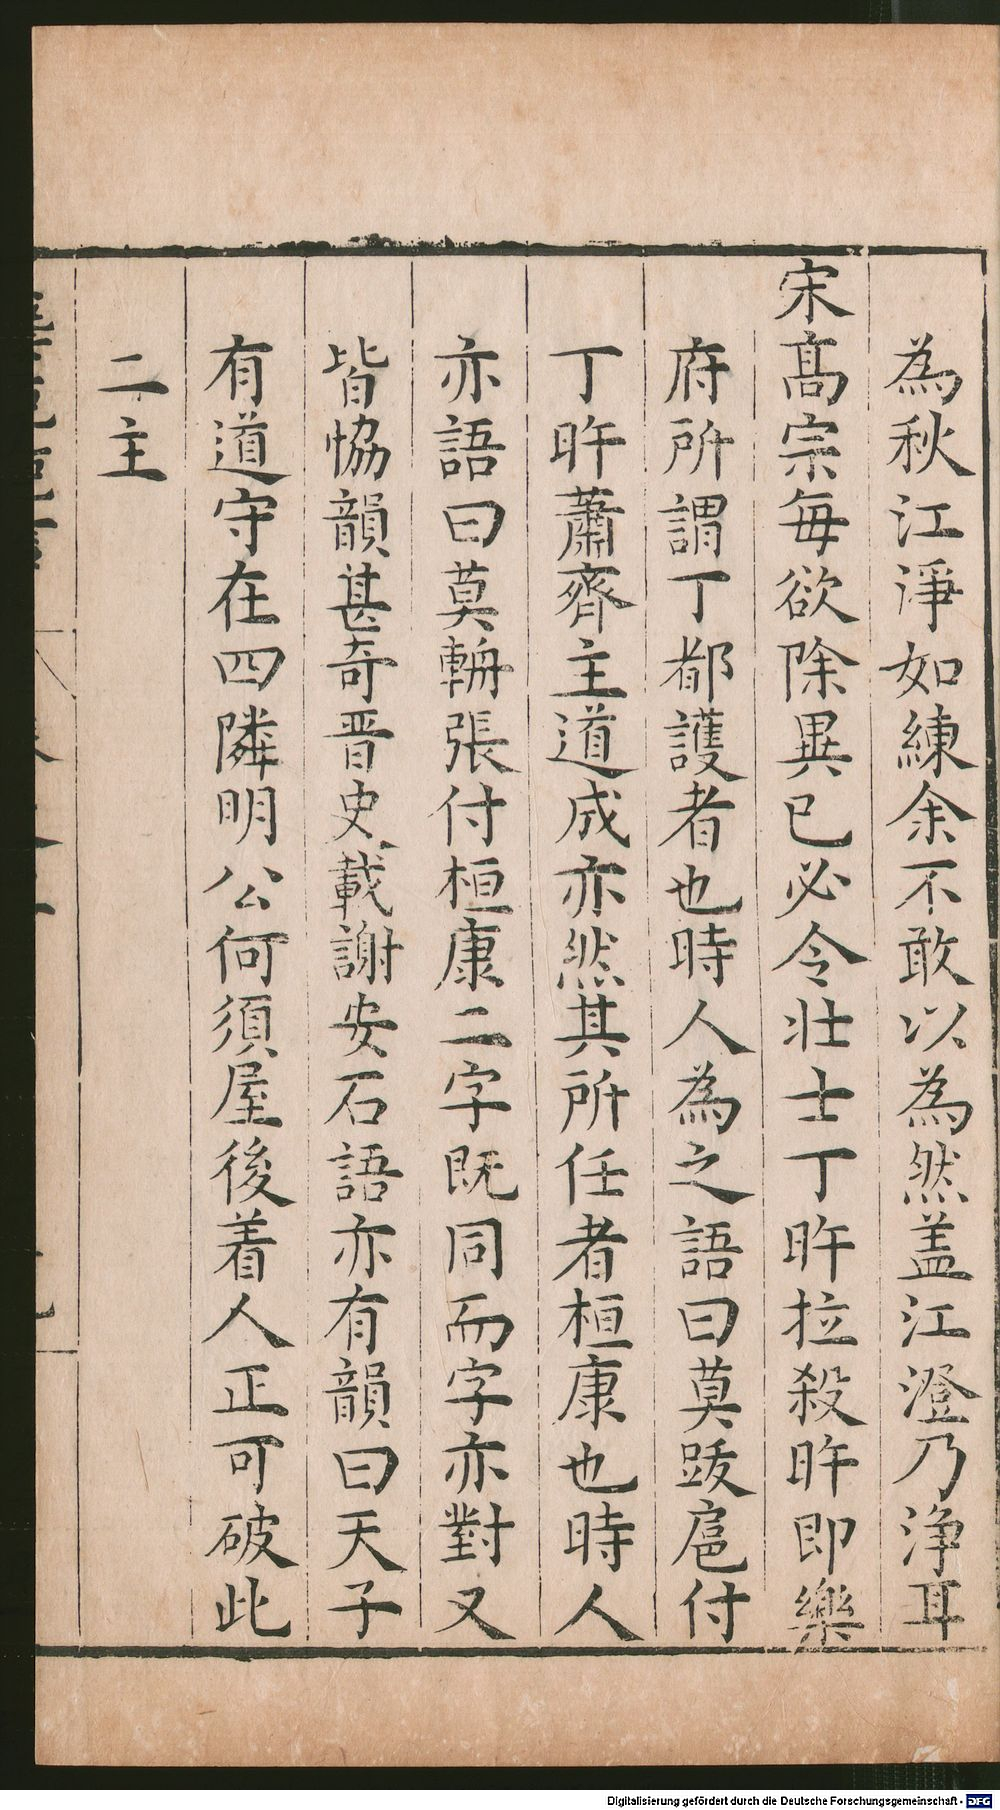 為秋江淨如練余不敢以為然盖江澄乃淨耳
宋髙宗每欲除異已必令壯士丁旿拉殺旿即樂
府所謂丁都護者也時人為之語曰莫跋扈付
丁旿蕭齊主道成亦然其所任者桓康也時人
亦語曰莫輈張付桓康二字既同而字亦對又
皆恊韻甚奇晋史載謝安石語亦有韻曰天子
有道守在四隣明公何須屋後着人正可破此
二主
Digitalisierung gefördert durch die Deutsche Forschungsgemeinschaft - DFG